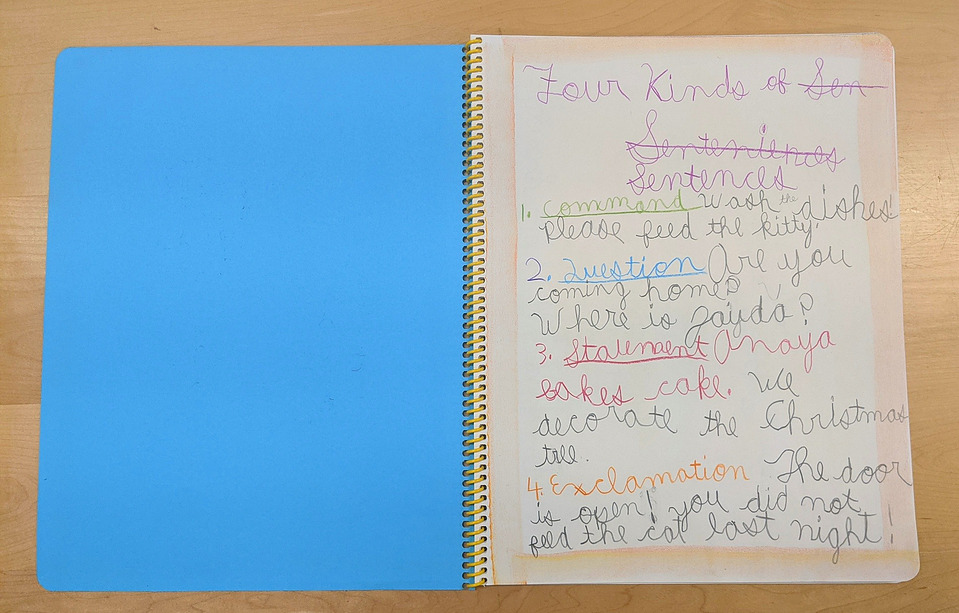 Four Kinds of Sen
Senteniences
Sentences
1. Command Wash the dishes!
Please feed the kitty.
2. Question Are you
coming home?
Where is Zayda?
3. Statement Anaya
bakes cake. We
decorate the Christmas
tree.
4. Exclamation The door
is open! you did not
feed the cat last night!